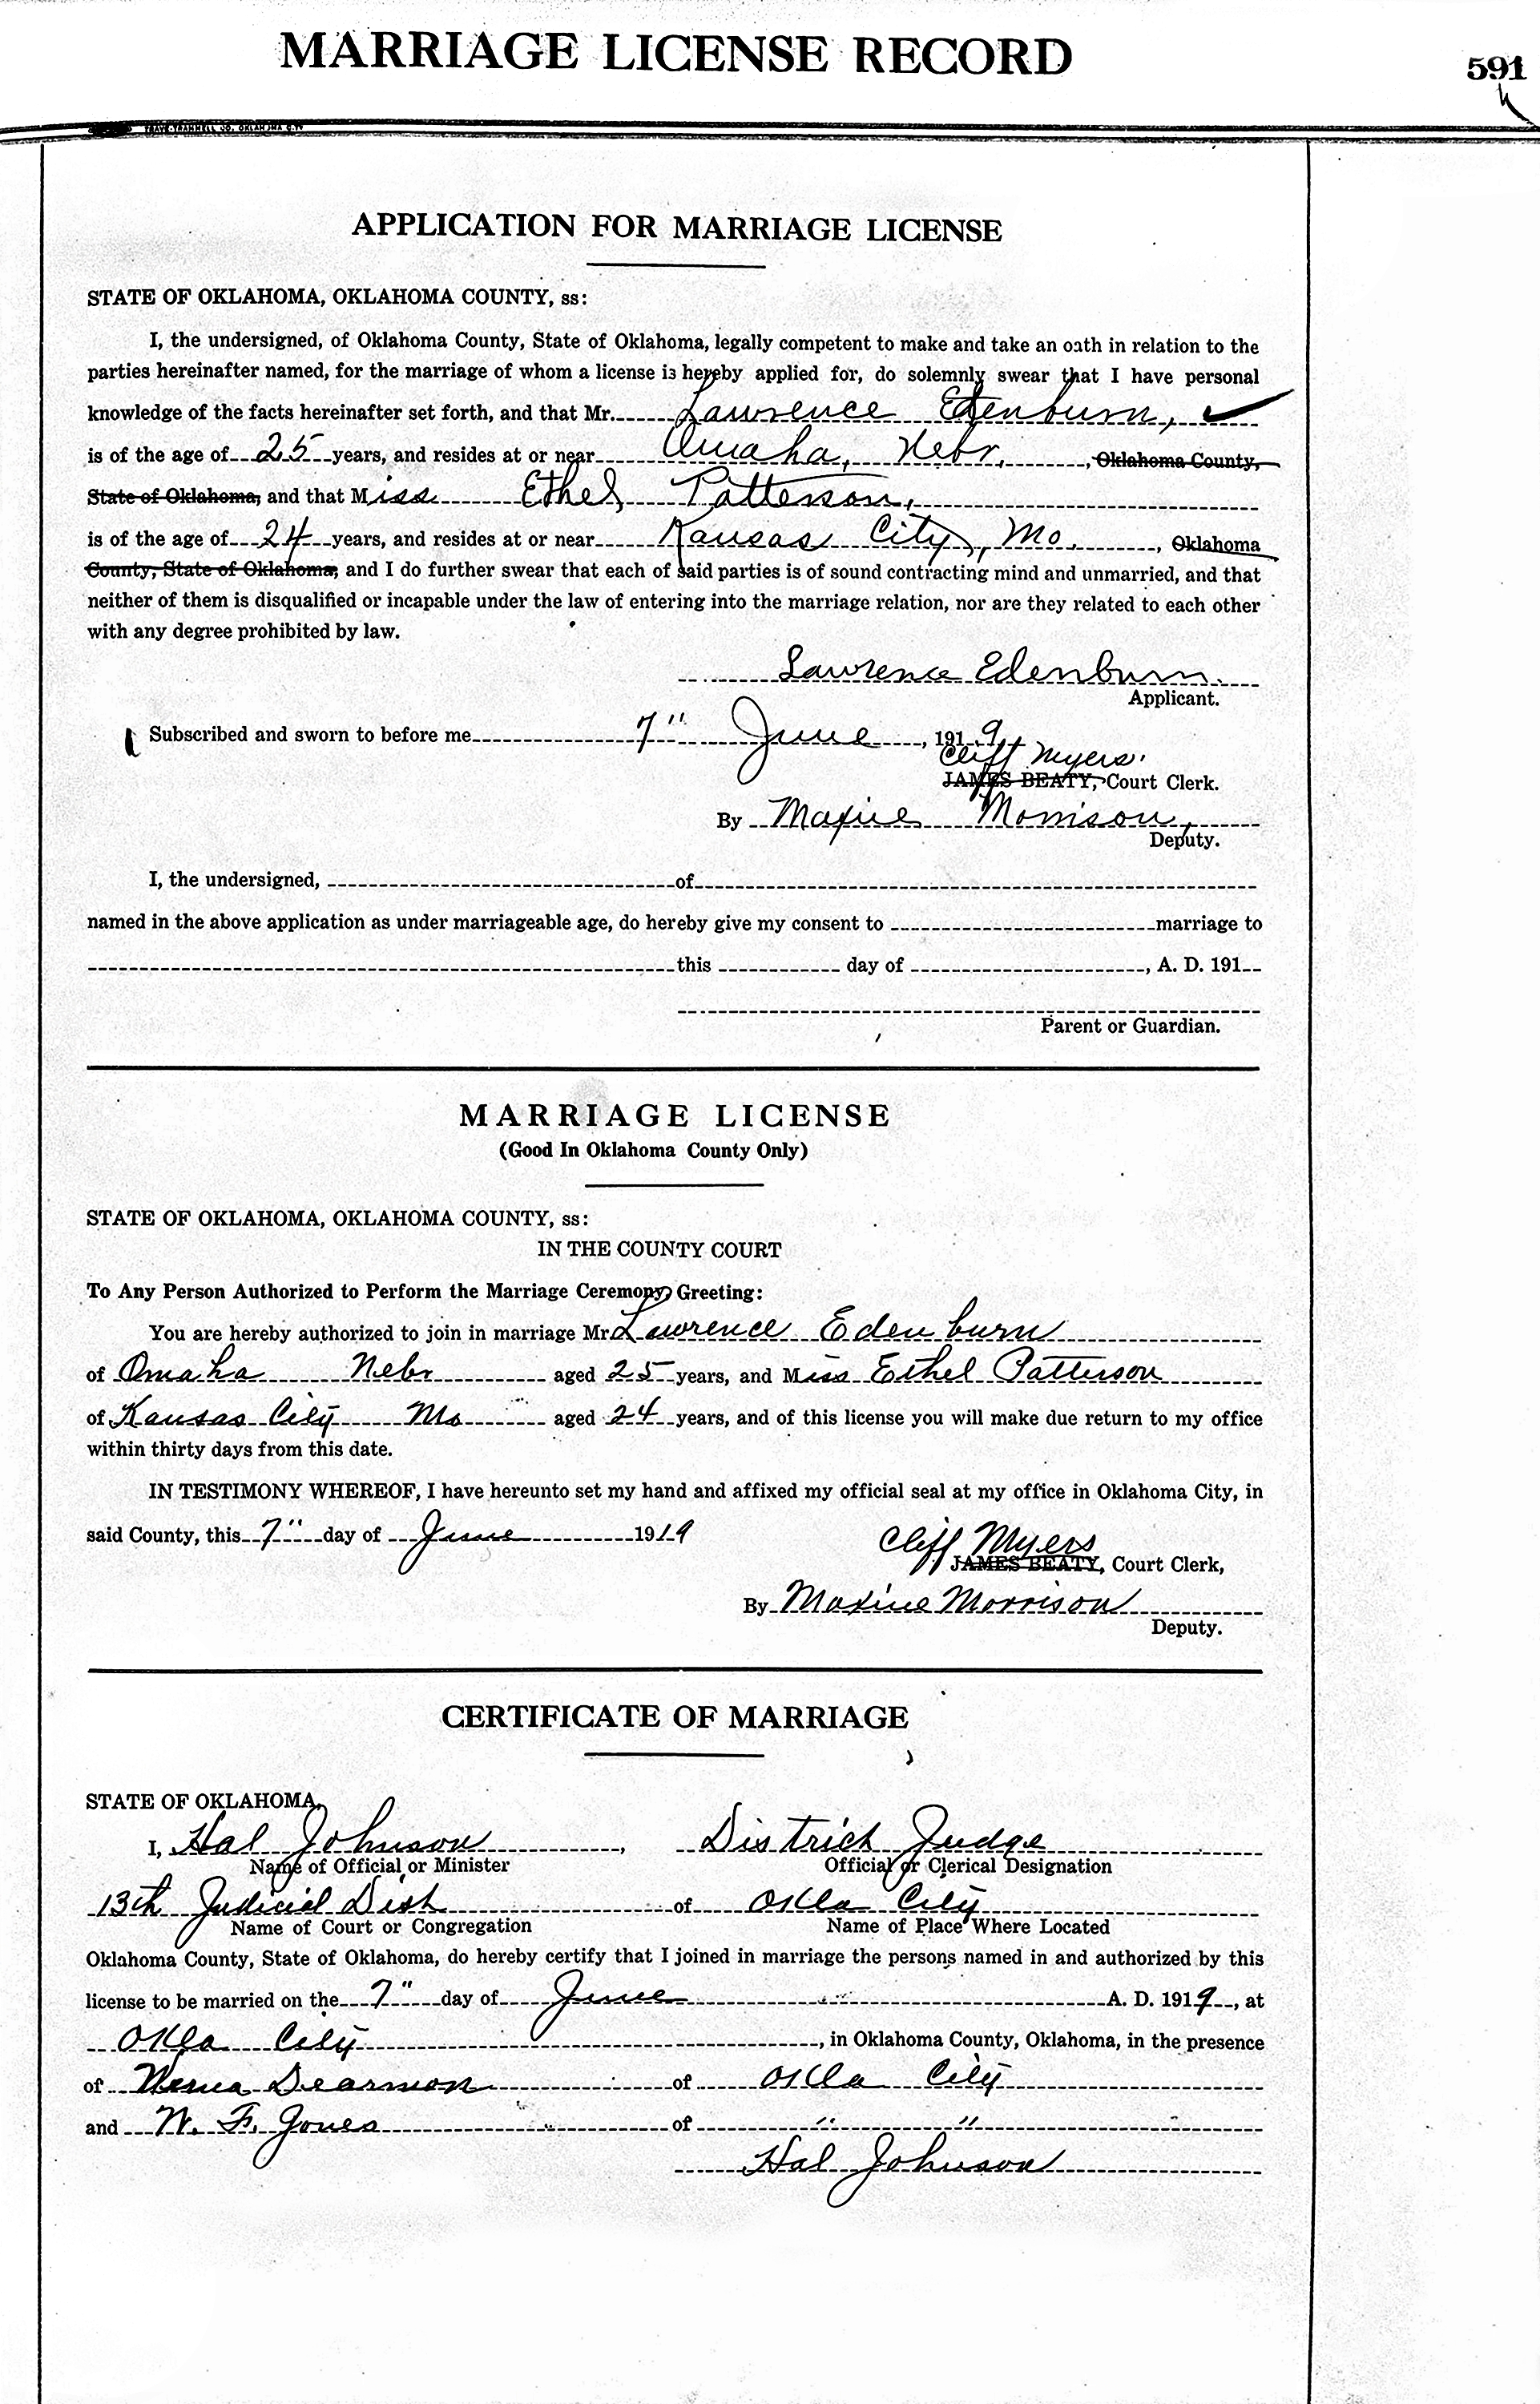 MARRIAGE LICENSE RECORD
591
APPLICATION FOR MARRIAGE LICENSE
STATE OF OKLAHOMA, OKLAHOMA COUNTY, ss:
I, the undersigned, of Oklahoma County, State of Oklahoma, legally competent to make and take an oath in relation to the
parties hereinafter named, for the marriage of whom a license is hereby applied for, do solemnly swear that I have personal
knowledge of the facts hereinafter set forth, and that Mr. Lawrence Edenburn,
is of the age of 25 years, and resides at or near Omaha, Nebr., Oklahoma County,
State of Oklahoma; and that Miss Ethel Patterson,
is of the age of 24 years, and resides at or near Kansas City, Mo., Oklahoma
County, State of Oklahoma; and I do further swear that each of said parties is of sound contracting mind and unmarried, and that
neither of them is disqualified or incapable under the law of entering into the marriage relation, nor are they related to each other
with any degree prohibited by law.
Lawrence Edenburn.
Applicant.
Subscribed and sworn to before me 7" June, 1919
Cliff Myers.
JAMES BEATY, Court Clerk.
By Maxine Morrison,
Deputy.
I, the undersigned, of
named in the above application as under marriageable age, do hereby give my consent to marriage to
this day of , A. D. 191
Parent or Guardian.
MARRIAGE LICENSE
(Good In Oklahoma County Only)
STATE OF OKLAHOMA, OKLAHOMA COUNTY, ss:
IN THE COUNTY COURT
To Any Person Authorized to Perform the Marriage Ceremony, Greeting:
You are hereby authorized to join in marriage Mr. Lawrence Edenburn
of Omaha Nebr aged 25 years, and Miss Ethel Patterson
of Kansas City Mo aged 24 years, and of this license you will make due return to my office
within thirty days from this date.
IN TESTIMONY WHEREOF, I have hereunto set my hand and affixed my official seal at my office in Oklahoma City, in
said County, this 7" day of June 1919
Cliff Myers
JAMES BEATY, Court Clerk,
By Maxine Morrison
Deputy.
CERTIFICATE OF MARRIAGE
STATE OF OKLAHOMA,
I, Hal Johnson, District Judge
Name of Official or Minister Official or Clerical Designation
13th Judicial Dist of Okla City
Name of Court or Congregation Name of Place Where Located
Oklahoma County, State of Oklahoma, do hereby certify that I joined in marriage the persons named in and authorized by this
license to be married on the 7" day of June A. D. 1919, at
Okla City, in Oklahoma County, Oklahoma, in the presence
of Dearmon of Okla City
and W. F. Jones of " "
Hal Johnson